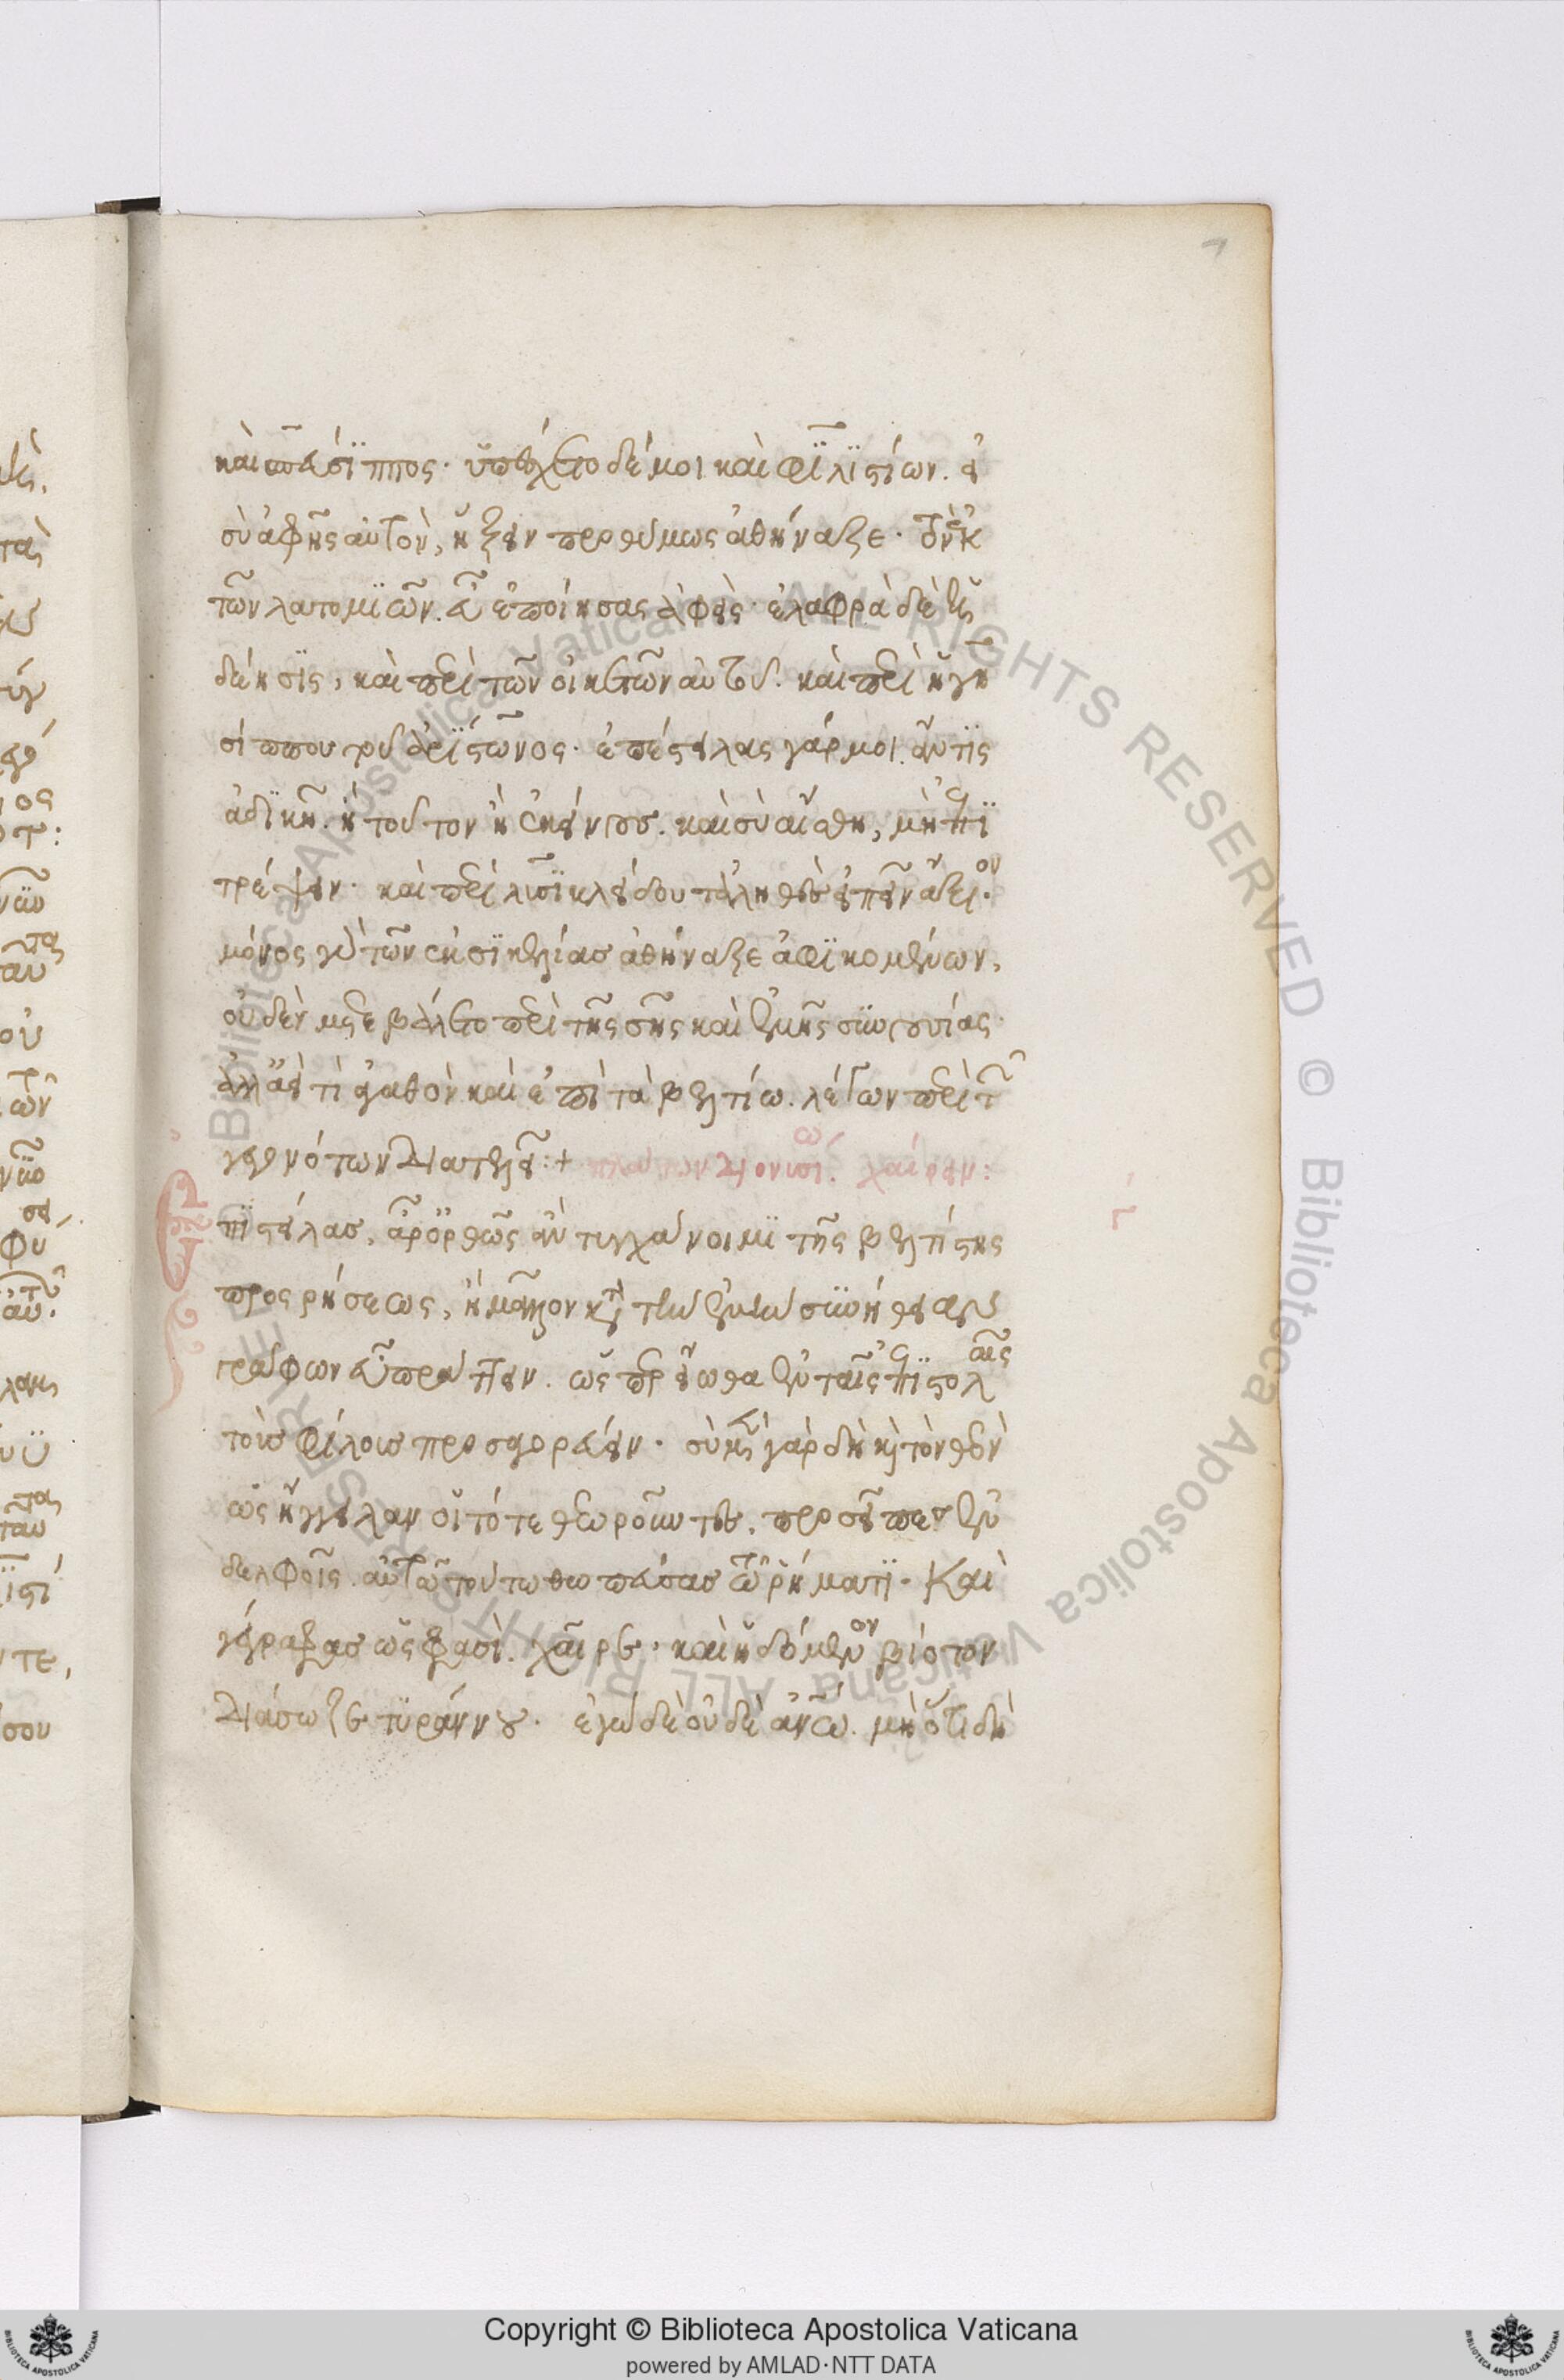 καὶ σπεύσιππος. ὑπέσχετο δέ μοι καὶ φιλιστίων. εἰ
σὺ ἀφῇς αὐτὸν, ἥξειν προθύμως ἀθήναζε. τὸν ἐκ
τῶν λατομιῶν εὖ ἐποίησας ἀφεὶς. ἐλαφρὰ δὲ ἡ
δέησις, καὶ περὶ τῶν οἰκετῶν αὐτοῦ. καὶ περὶ ἡγη
σίππου τοῦ ἀρίστωνος. ἐπέστειλας γάρ μοι. ἄν τις
ἀδικῇ. ἢ τοῦτον ἢ ἐκείνους. καὶ σὺ αἴσθῃ, μὴ ἐπι
τρέψειν. καὶ περὶ λυσικλείδου τἀληθὲς εἰπεῖν ἄξιον.
μόνος γὰρ τῶν ἐκ σικελίας ἀθήναζε ἀφικομένων,
οὐδὲν μετεβάλετο περὶ τῆς σῆς καὶ ἐμῆς συνουσίας.
ἀλλ' ἀεί τι ἀγαθὸν καὶ ἐπὶ τὰ βελτίω. λέγων περὶ τῶν
γεγονότων διατελεῖ:+ πλάτων διονυσίω. χαίρειν:
πιστείλας, ἆρ' ὀρθῶς ἂν τυγχάνοιμι τῆς βελτίστης
προσρήσεως, ἢ μᾶλλον κατὰ τὴν ἐμὴν συνήθειαν
γράφων εὖ πράττειν. ὥσπερ εἴωθα ἐν ταῖς ἐπιστολαῖς
τοὺς φίλους προσαγορεύειν. σὺ μὲν γὰρ δὴ καὶ τὸν θεὸν
ὡς ἤγγειλαν οἱ τότε θεωροῦντες. προσεῖπες ἐν
δελφοῖς. αὐτῷ τούτῳ θωπεύσας τῷ ῥήματι. Καὶ
γέγραφας ὥς φασὶ. χαῖρε. καὶ ἡδόμενον βίοτον
διάσωζε τυράννου. ἐγὼ δὲ οὐδὲ ἀνθρώπῳ. μὴ ὅτι δὴ